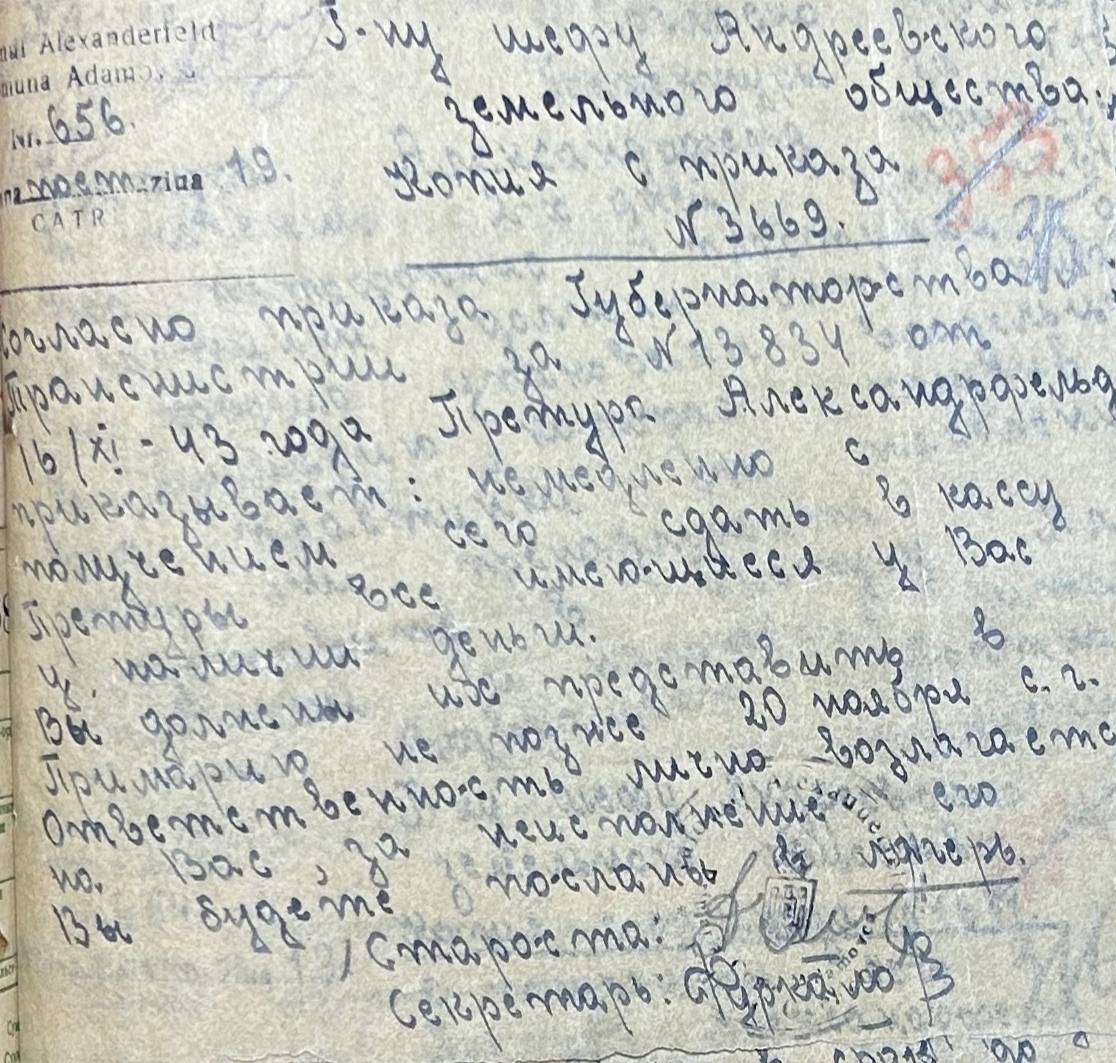 Alexanderfeld
Adam
Nr. 656.
ziua 19.
CATR
Г-ну шефу Андреевского
земельного общества.
353
Копия с приказа
N 3669.
Согласно приказа Губернаторства
Транснистрии за N 13834 от
16/XI - 43 года Претура Александрфельд
приказывает: немедленно с
получением сего сдать в кассу
Претуры все имеющиеся у Вас
у наличии деньги.
Вы должны их представить в
Примарию не позже 20 ноября с. г.
Ответственность лично возлагаетс
на Вас, за неисполнение его
Вы будете посланы в лагерь.
Староста:
Секретарь: